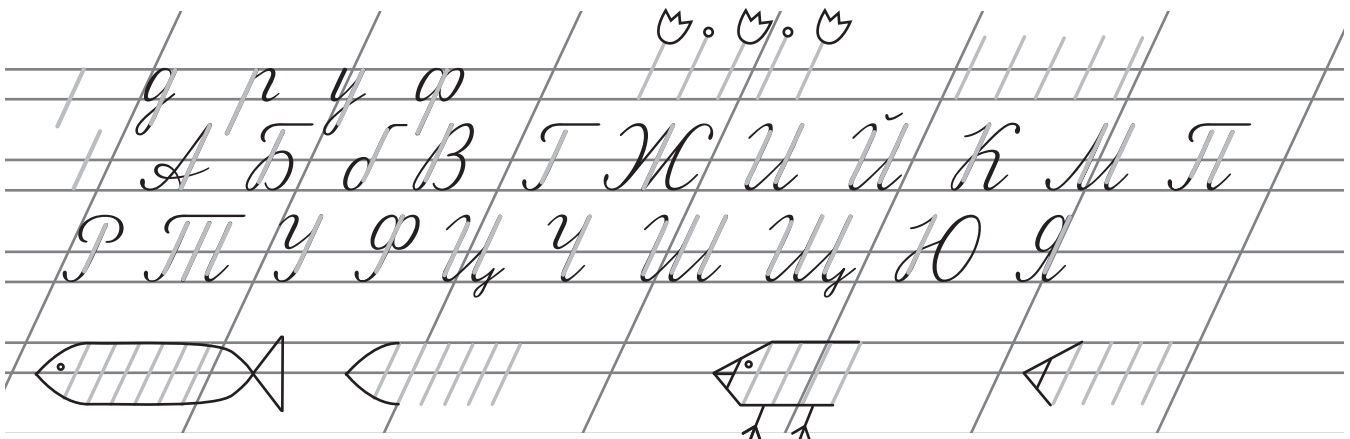 д п у ф
А Б б В Г Ж И Й К М П
Р Т У Ф Ц Ч Ш Щ Ю Я